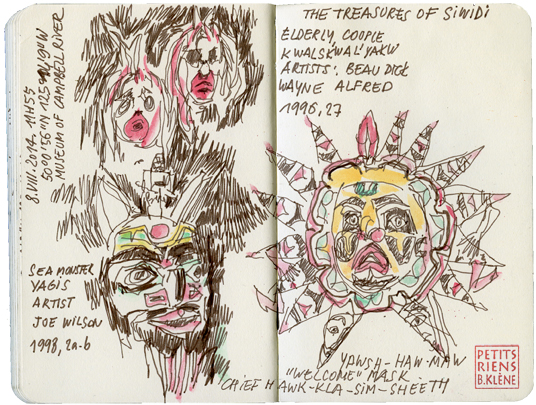 8.VIII.2014. 11H55
MUSEUM OF CAMPBELL RIVER
SEA MONSTER
YAGIS
ARTIST
JOE WILSON
1998, 2a-b
THE TREASURES OF SIWIDI
ELDERLY COOPLE
KWALSK'WAL'YAKW
ARTISTS: BEAU DICK
WAYNE ALFRED
1996, 27
YAWSH-HAW-MAW
"WELCOME" MASK
CHIEF HAWK-KLA-SIM-SHEETH
PETITS
RIENS
B.KLÈNE